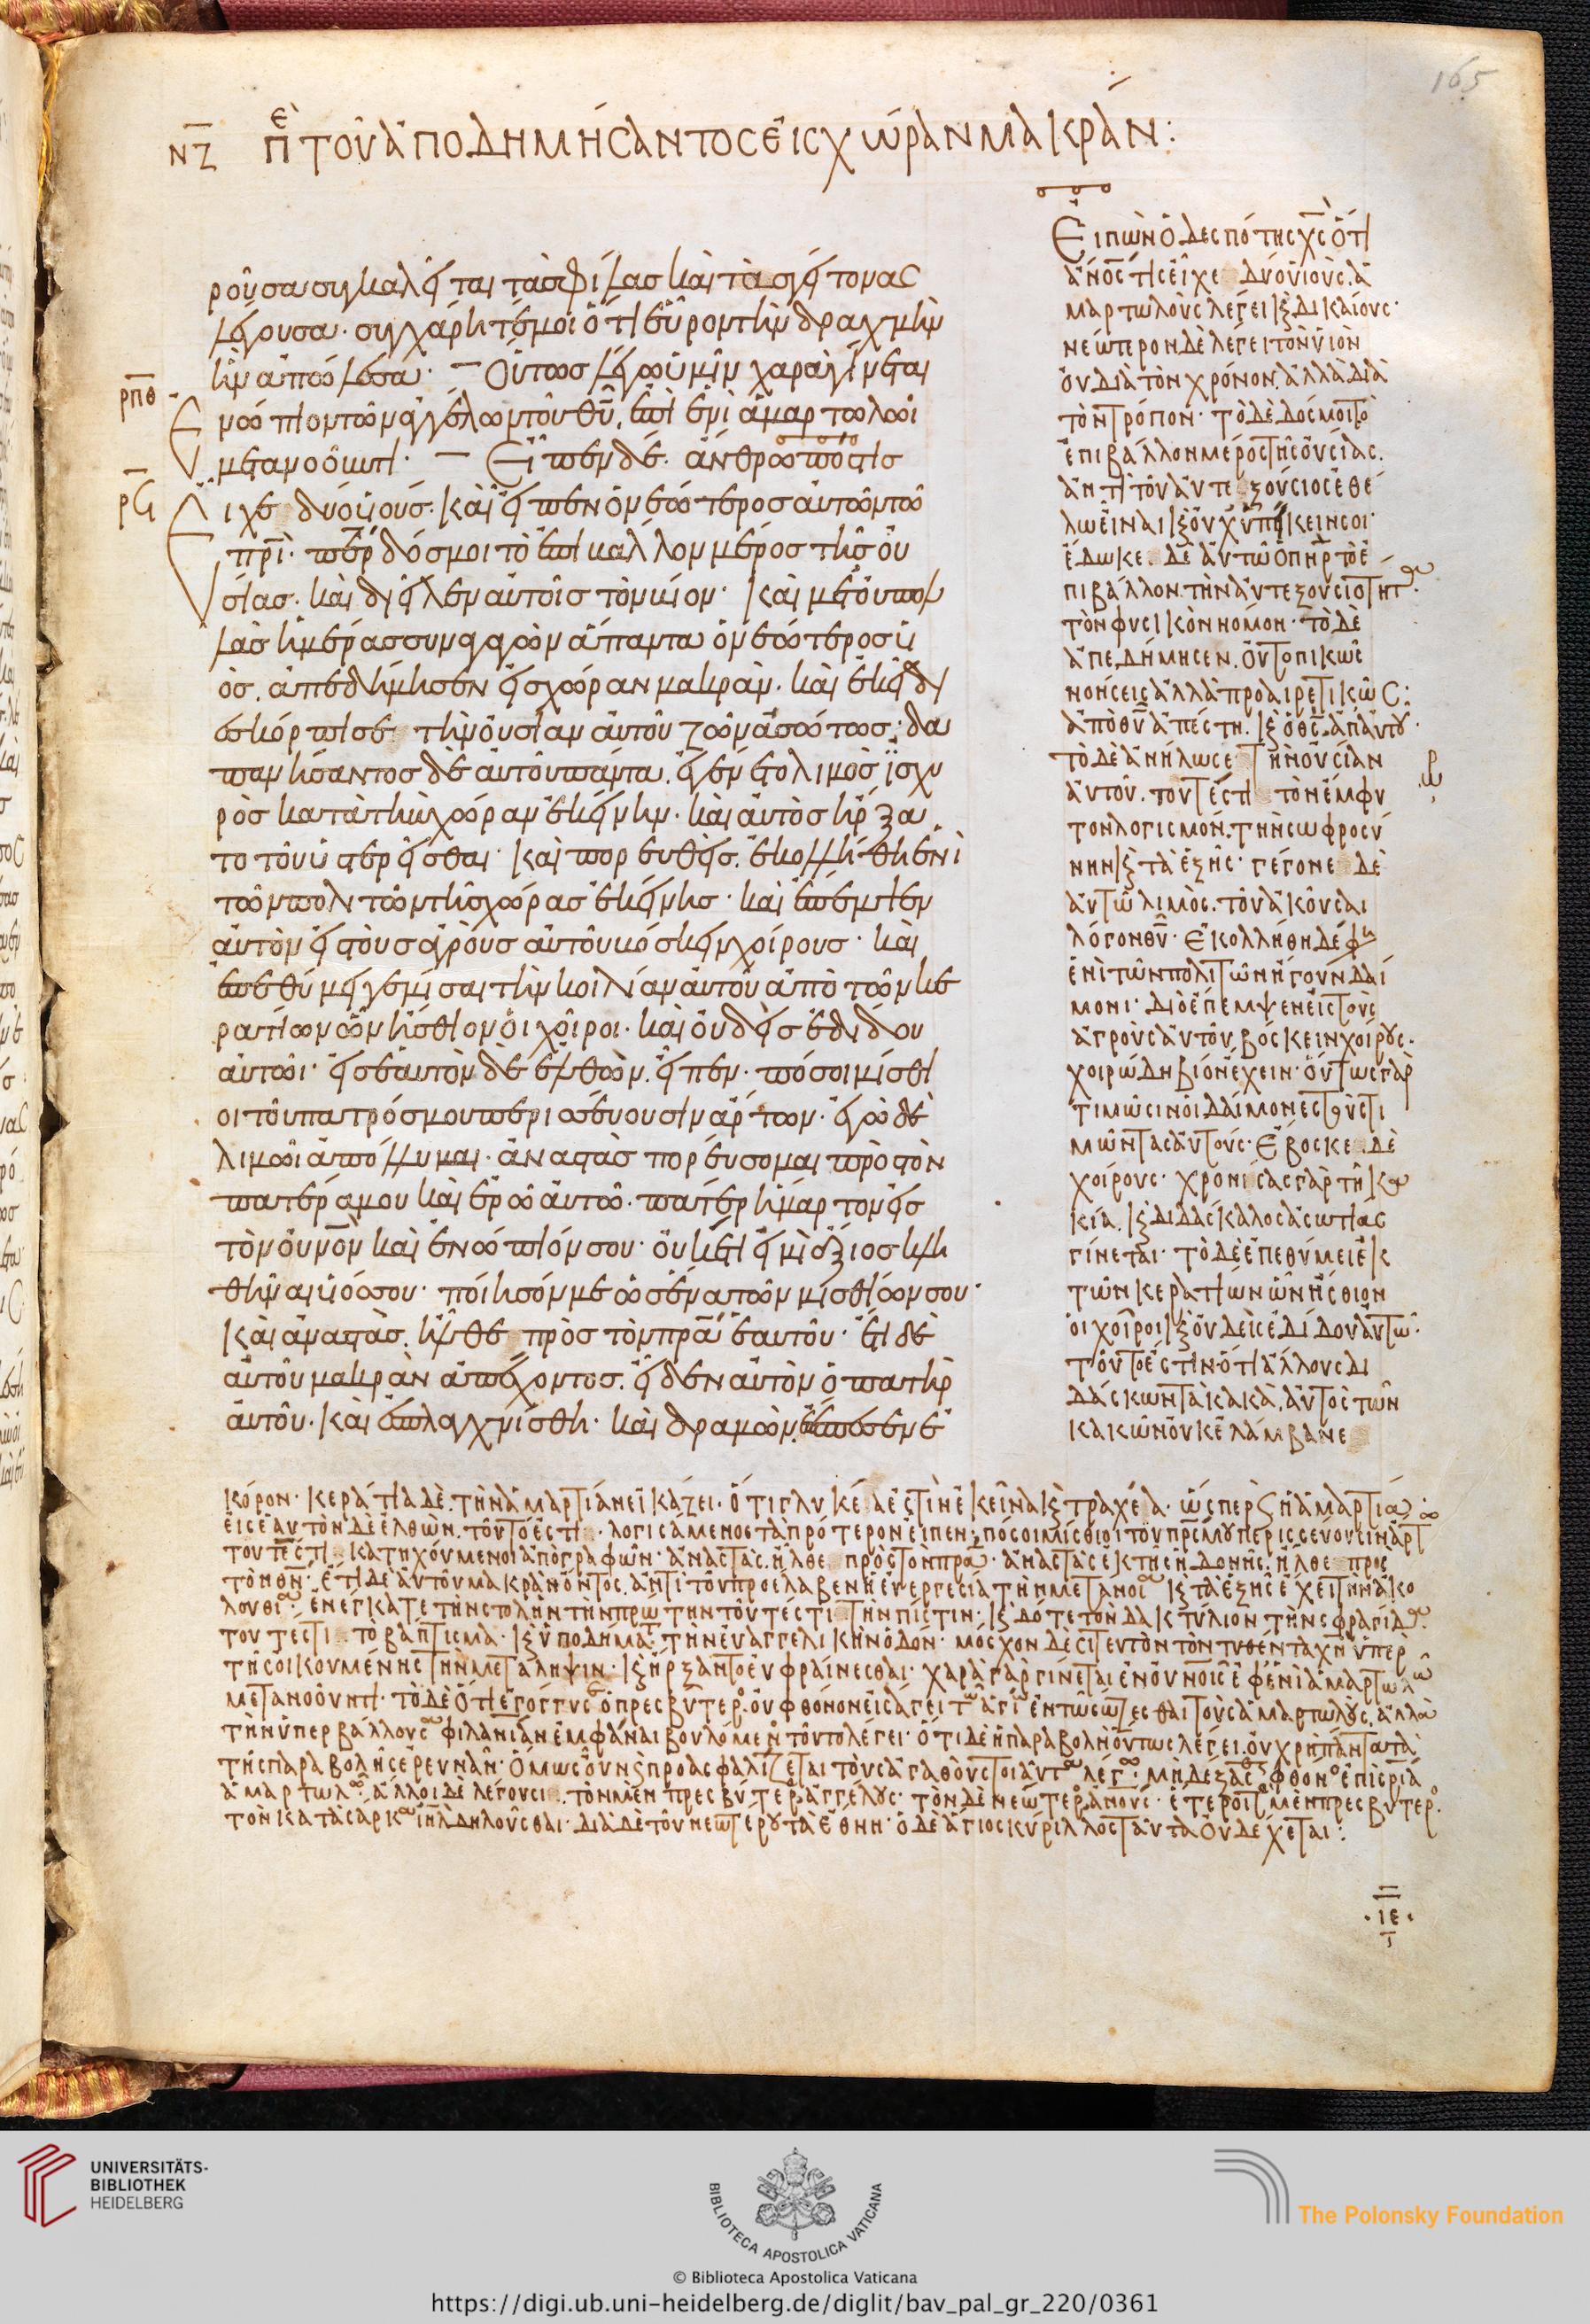 165
ΝΖ Πε ΤΟΥ ἈΠΟΔΗΜΉΣΑΝΤΟΣ ΕἸΣ ΧΏΡΑΝ ΜΑΚΡΆΝ:
ροῦσα συγκαλεῖται τὰς φίλας καὶ τὰς γείτονας
λέγουσα· συγχάρητέ μοι ὅτι εὗρον τὴν δραχμὴν
ἣν ἀπώλεσα· Οὕτως λέγω ὑμῖν χαρὰ γίνεται
ρπθ ἐνώπιον τῶν ἀγγέλων τοῦ θυ, ἐπὶ ἑνὶ ἁμαρτωλῶι
μετανοοῦντι· Εἶπεν δέ· ἄνθρωπός τις
ρϟ εἶχε δύο υἱούς· καὶ εἶπεν ὁ νεώτερος αὐτῶν τῶ
πρι· περ δός μοι τὸ ἐπιβάλλον μέρος τῆς οὐ
σίας· καὶ διεῖλεν αὐτοῖς τὸν βίον· καὶ μετ' οὐ πολ
λὰς ἡμέρας συναγαγὼν ἅπαντα ὁ νεώτερος υἱ
ός, ἀπεδήμησεν εἰς χώραν μακράν· καὶ ἐκεῖ δι
εσκόρπισε τὴν οὐσίαν αὐτοῦ ζῶν ἀσώτως· δα
πανήσαντος δὲ αὐτοῦ πάντα, ἐγένετο λιμὸς ἰσχυ
ρὸς κατὰ τὴν χώραν ἐκείνην· καὶ αὐτὸς ἤρξα
το τοῦ ὑστερεῖσθαι· καὶ πορευθεὶς, ἐκολλήθη ἑνὶ
τῶν πολιτῶν τῆς χώρας ἐκείνης· καὶ ἔπεμψεν
αὐτὸν εἰς τοὺς ἀγροὺς αὐτοῦ βόσκειν χοίρους· καὶ
ἐπεθύμει γεμίσαι τὴν κοιλίαν αὐτοῦ ἀπὸ τῶν κε
ρατίων ὧν ἤσθιον οἱ χοῖροι· καὶ οὐδεὶς ἐδίδου
αὐτῶι· εἰς ἑαυτὸν δὲ ἐλθὼν, εἶπεν· πόσοι μίσθι
οι τοῦ πατρός μου περισσεύουσιν ἄρτων· ἐγὼ δὲ
λιμῶι ἀπόλλυμαι· ἀναστὰς πορεύσομαι πρὸς τὸν
πατέρα μου καὶ ἐρῶ αὐτῶ· πάτερ ἥμαρτον εἰς
τὸν οὐνον καὶ ἐνώπιόν σου· οὐκέτι εἰμὶ ἄξιος κλη
θῆναι υἱός σου· ποίησόν με ὡς ἕνα τῶν μισθίων σου·
καὶ ἀναστὰς, ἦλθε πρὸς τὸν πρα ἑαυτοῦ· ἔτι δὲ
αὐτοῦ μακρὰν ἀπέχοντος, εἶδεν αὐτὸν ὁ πατὴρ
αὐτοῦ· καὶ ἐσπλαγχνίσθη· καὶ δραμὼν, ἐπέπεσεν ἐ
Εἰπὼν ὁ δεσπότης χς ὅτι
ἄνος τις εἶχε δύο υἱοὺς, ἁ
μαρτωλοὺς λέγει κ δικαίους·
νεώτερον δὲ λέγει τὸν υἱὸν
οὐ διὰ τὸν χρόνον, ἀλλὰ διὰ
τὸν τρόπον· τὸ δὲ δός μοι τὸ
ἐπιβάλλον μέρος τῆς οὐσίας,
ἀντὶ τοῦ αὐτεξούσιος ἐθέ
λω εἶναι κ οὐχ ὑποκεῖν σοι·
ἔδωκε δὲ αὐτῶ ὁ πηρ τὸ ἐ
πιβάλλον, τὴν αὐτεξουσιότητα·
τὸν φυσικὸν νόμον· τὸ δὲ
ἀπεδήμησεν, οὐ τοπικῶς
νοήσεις ἀλλὰ προαιρετικῶς:
ἀπὸ θυ ἀπέστη, κ ὁ θς ἀπ' αὐτοῦ·
τὸ δὲ ἀνήλωσε τὴν οὐσίαν
αὐτοῦ, τουτέστι τὸν ἔμφυ
τον λογισμόν, τὴν σωφροσύ
νην κ τὰ ἑξῆς· γέγονε δὲ
αὐτῶ λιμὸς, τοῦ ἀκοῦσαι
λόγον θυ· ἐκολλήθη δέ φη
ἑνὶ τῶν πολιτῶν ἤγουν δαί
μονι· διὸ ἔπεμψεν εἰς τοὺς
ἀγροὺς αὐτοῦ, βόσκειν χοίρους·
χοιρώδη βίον ἔχειν· οὕτως γὰρ
τιμῶσιν οἱ δαίμονες τοὺς τι
μῶντας αὐτούς· ἔβοσκε δὲ
χοίρους· χρονίσας γὰρ τῆ κα
κία, κ διδάσκαλος ἀσωτίας
γίνεται· τὸ δὲ ἐπεθύμει ἐκ
τῶν κερατίων ὧν ἤσθιον
οἱ χοῖροι κ οὐδεὶς ἐδίδου αὐτῶ·
τοῦτο ἔστιν· ὅτι ἄλλους δι
δάσκων τὰ κακὰ, αὐτὸς τῶν
κακῶν οὐκ ἐλάμβανε
κόρον· κεράτια δὲ, τὴν ἁμαρτίαν εἰκάζει· ὅτι γλυκέα ἐστὶν ἐκεῖνα κ τραχέα· ὥσπερ κ ἡ ἁμαρτία
εἰς ἑαυτὸν δὲ ἐλθὼν, τοῦτο ἔστι· λογισάμενος τὰ πρότερον εἶπεν· πόσοι μίσθιοι τοῦ πρς μου περισσεύουσιν ἄρτ
τουτέστι κατηχούμενοι ἀπὸ γραφῶν· ἀναστὰς, ἦλθε πρὸς τὸν πρα· ἀναστὰς ἐκ τῆς ἡδονῆς, ἦλθε πρὸς
τὸν θν· ἔτι δὲ αὐτοῦ μακρὰν ὄντος, ἀντὶ τοῦ προέλαβεν ἡ εὐεργεσία τὴν μετάνοιαν κ τὰ ἑξῆς ἔχει τὴν ἀκο
λουθίαν· ἐνέγκατε τὴν στολὴν τὴν πρώτην τουτέστι τὴν πίστιν· κ δότε τὸν δακτύλιον τὴν σφραγίδα·
τουτέστι τὸ βάπτισμα· κ ὑποδήματα τὴν εὐαγγελικὴν ὁδόν· μόσχον δὲ σιτευτὸν τὸν τυθέντα χν ὑπὲρ
τῆς οἰκουμένης τὴν μετάληψιν· κ ἤρξαντο εὐφραίνεσθαι· χαρὰ γὰρ γίνεται ἐν οὐνοις ἐφ' ἑνὶ ἁμαρτωλῶ
μετανοοῦντι· τὸ δὲ ὅτι ἐγόγγυσεν ὁ πρεσβύτερος, οὐ φθόνον εἰσάγει τῶν ἁγίων ἐν τῶ σώζεσθαι τοὺς ἁμαρτωλοὺς, ἀλλὰ
τὴν ὑπερβάλλουσαν φιλανίαν ἐμφάναι βουλόμενος τοῦτο λέγει· ὅτι δὲ ἡ παραβολὴ οὕτως λέγει, οὐ χρὴ πάντα τὰ
τῆς παραβολῆς ἐρευνᾶν· ὅμως οὖν κ προασφαλίζεται τοὺς ἀγαθοὺς τοιαῦτα λέγων· μὴ δέξασθαι φθόνον ἐπιστρ
ἁμαρτωλῶν· ἄλλοι δὲ λέγουσι τὸν μὲν πρεσβύτερον, ἀγγέλους· τὸν δὲ νεώτερον, ἀνους· ἕτεροι τὸν μὲν πρεσβύτερον,
τὸν κατὰ σάρκα ιηλ δηλοῦσθαι· διὰ δὲ τοῦ νεωτέρου τὰ ἔθνη· ὁ δὲ ἅγιος κύριλλος ταῦτα οὐ δέχεται:
ιε
UNIVERSITÄTS-
BIBLIOTHEK
HEIDELBERG
BIBLIOTECA APOSTOLICA VATICANA
The Polonsky Foundation
© Biblioteca Apostolica Vaticana
https://digi.ub.uni-heidelberg.de/diglit/bav_pal_gr_220/0361